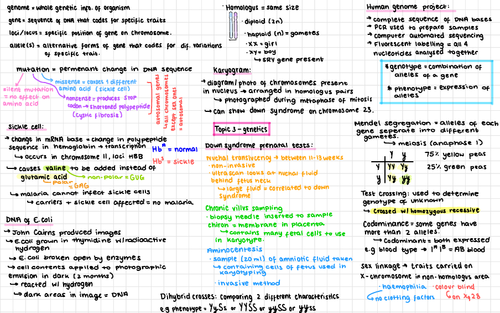 genome = whole genetic info. of organism
gene = sequence of DNA that codes for specific traits
loci/locus = specific position of gene on chromosome.
allele(s) = alternative forms of gene that codes for dif. variations
of specific trait.
mutation = permenant change in DNA sequence
silent mutation
= no effect on
amino acid
missense = causes 1 different
amino acid (sickle cell)
nonsense = produces stop
codon → shortened polypeptide
(cystic fibrosis)
sickle cell:
→ change in mRNA base = change in polypeptide
sequence in hemoglobin → transcription
→ occurs in chromosome 11, loci HBB
→ causes valine to be added instead of
glutamic acid
→ non-polar = GUG
→ GAG
→ malaria cannot infect sickle cells
→ carriers + sickle cell affected = no malaria
Hbᴬ = normal
Hbˢ = sickle
DNA of E.coli
→ John Cairns produced images
→ E.coli grown in thymidine w/radioactive
hydrogen
→ E.coli broken open by enzymes
→ cell contents applied to photographic
emulsion in dark (2 months)
→ reacted w/ hydrogen
→ dark areas in image = DNA
Homologus = same size
· diploid (2n)
· haploid (n) = gametes
· xx = girl
· xy = boy
↳ SRY gene present
Karyogram:
→ diagram/photo of chromosomes present
in nucleus → arranged in homologus pairs
→ photographed during metaphase of mitosis
→ can show down syndrome on chromosome 23.
Topic 3 - genetics
Down syndrome prenatal tests:
Nuchal translucency → between 11-13 weeks
· non-invasive
· ultrascan looks at nuchal fluid
behind fetus neck
↳ large fluid = correlated to down
syndrome
Chronic villus sampling
· biopsy needle inserted to sample
chiron = membrane in placenta
↳ contains many fetal cells to use
in karyotype.
Aminocentesis
· sample (20 ml) of amniotic fluid taken
↳ containing cells of fetus used in
karyotyping
· invasive method
Dihybrid crosses: comparing 2 different characteristics
e.g phenotype = YySs or YYSS or yySS or yyss
Human genome project:
→ complete sequence of DNA bases
→ PCR used to prepare samples
→ computer automated sequencing
→ Fluorescent labelling = all 4
nucleotides analysed together
genotype = combination of
alleles of a gene
phenotype = expression of
alleles
Mendel segregation = alleles of each
gene seperate into different
gametes.
↳ meiosis (anaphase 1)
Y y
Y YY Yy
y Yy yy
75% yellow peas
25% green peas
Test crossing: used to determine
genotype of unknown
↳ crossed w/ homozygous recessive
Codominance = some genes have
more than 2 alleles
↳ Codominant = both expressed
e.g blood type → Iᴬ Iᴮ = AB blood
Sex linkage → traits carried on
X-chromosome in non-homologus area
· haemophilia
↳ no clotting factors
· colour blind
↳ on Xq28